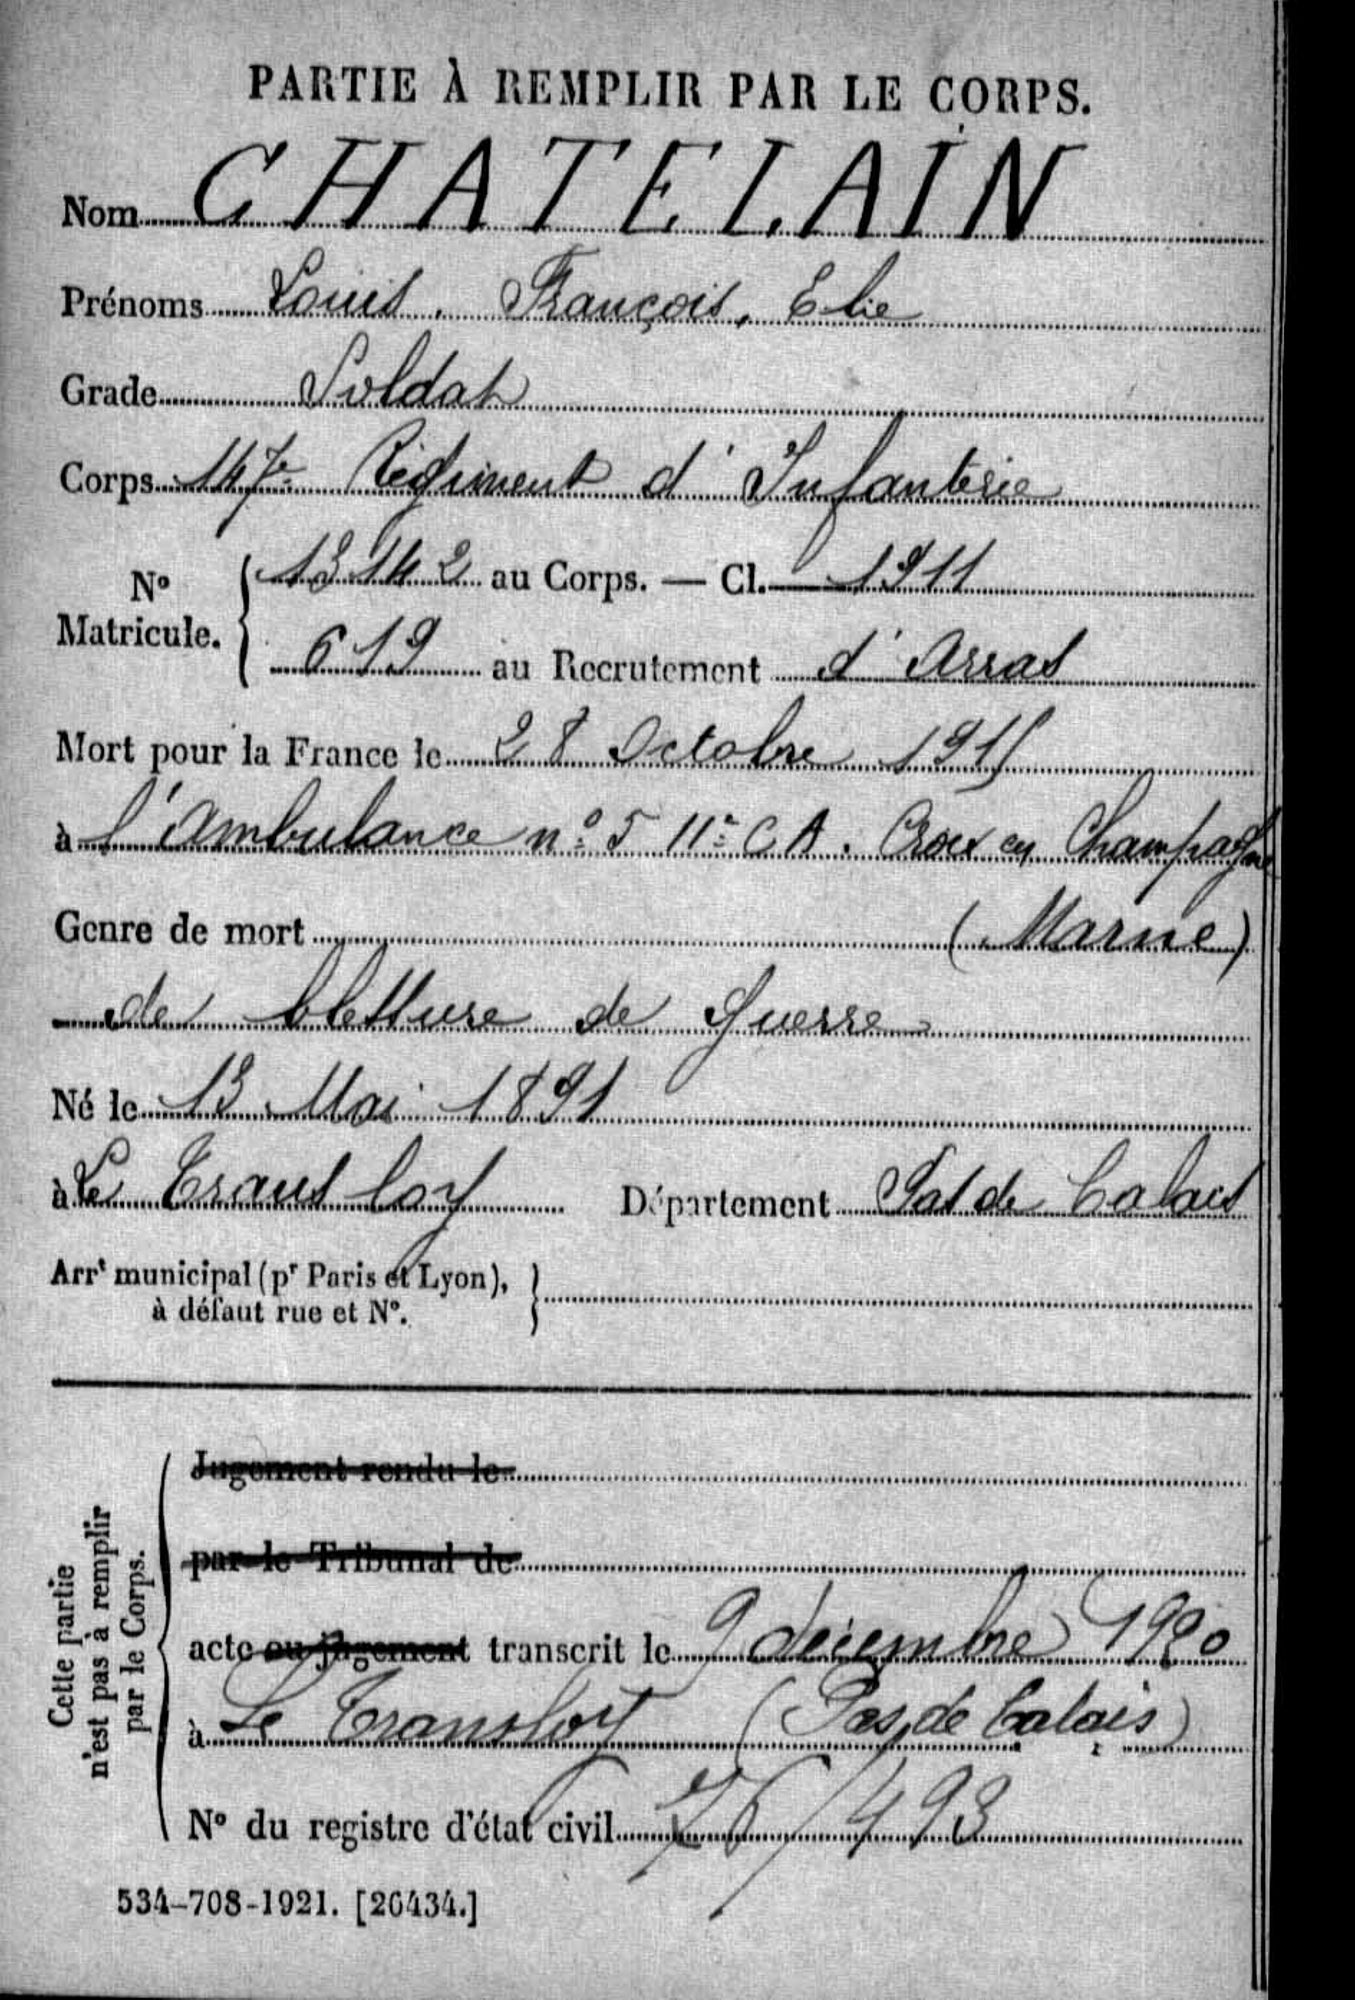 PARTIE À REMPLIR PAR LE CORPS.
Nom CHATELAIN
Prénoms Louis, François, Elie
Grade Soldat
Corps 147e Régiment d'Infanterie
No Matricule. { 13142 au Corps. — Cl. 1911
619 au Recrutement d'Arras
Mort pour la France le 28 Octobre 1915
à l'Ambulance no 5 11e C.A. Croix en Champagne
Genre de mort (Marne)
de blessure de Guerre
Né le 13 Mai 1891
à Le Transloy Département Pas de Calais
Arrt municipal (pr Paris et Lyon), }
à défaut rue et No.
Cette partie
n'est pas à remplir
par le Corps.
Jugement rendu le
par le Tribunal de
acte ou jugement transcrit le 9 décembre 1920
à Le Transloy (Pas de Calais)
No du registre d'état civil /493
534-708-1921. [26434.]